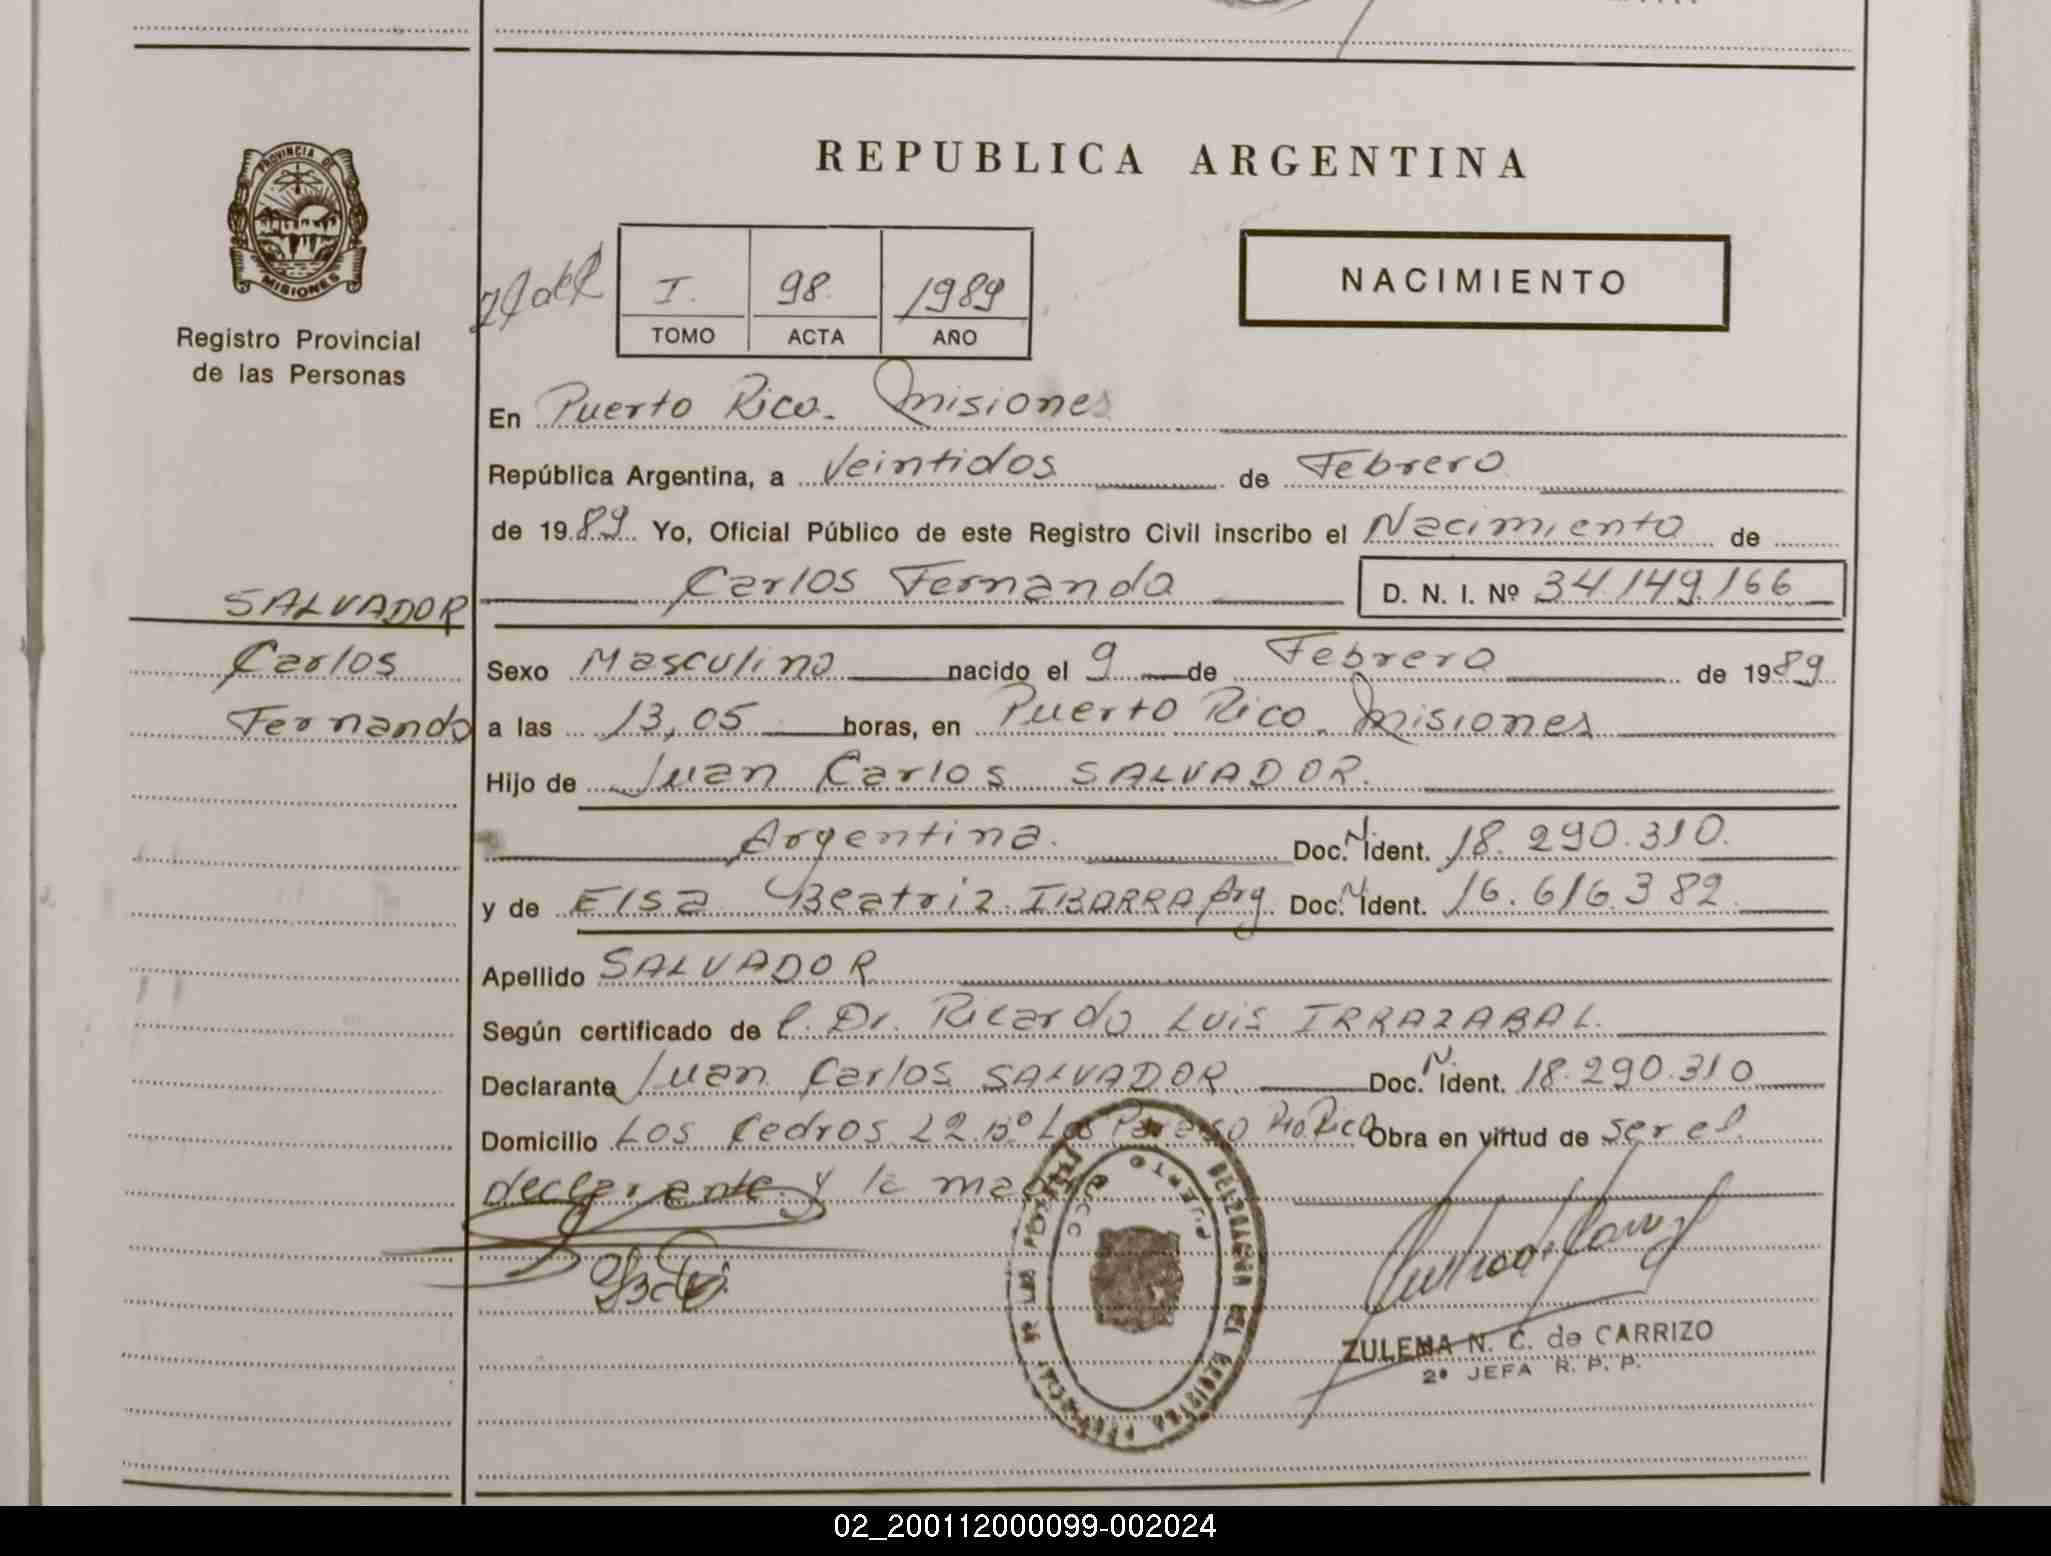 PROVINCIA DE
MISIONES
Registro Provincial
de las Personas
REPUBLICA ARGENTINA
I. 98. 1989
TOMO ACTA AÑO
NACIMIENTO
En Puerto Rico. Misiones
República Argentina, a Veintidos de Febrero
de 1989 Yo, Oficial Público de este Registro Civil inscribo el Nacimiento de
Carlos Fernando D. N. I. Nº 34.149.166
SALVADOR
Carlos
Fernando
Sexo Masculino nacido el 9 de Febrero de 1989
a las 13,05 horas, en Puerto Rico. Misiones
Hijo de Juan Carlos SALVADOR.
Argentina. Doc. N. Ident. 18.290.310.
y de Elsa Beatriz IBARRA Arg. Doc. N. Ident. 16.616.382.
Apellido SALVADOR
Según certificado de l. Dr. Ricardo Luis IRRAZABAL.
Declarante Juan Carlos SALVADOR Doc. N. Ident. 18.290.310
Domicilio Los Cedros 22 Bº Pto Rico Obra en virtud de ser el
declarante y la madre
ZULEMA N. C. de CARRIZO
2ª JEFA R. P. P.
02_200112000099-002024